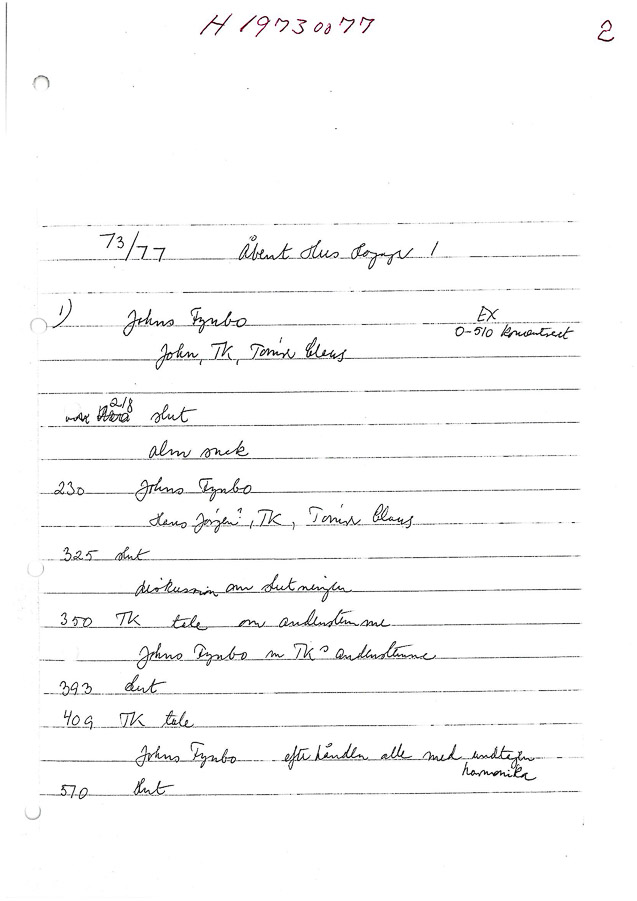 H 19730077 2
73/77 Åbent Hus Hogager 1
1) Johns Fynbo EX
0-510 koncentreret
John, TK, Tomise Claus
218 slut
alm snak
230 Johns Fynbo
Hans Jørgen?, TK, Claus
325 slut
diskussion om slutningen
350 TK tele om andenstemme
Johns Fynbo m TKs andenstemme
393 slut
409 TK tele
Johns Fynbo efterhånden alle med undtagen
harmonika
510 slut